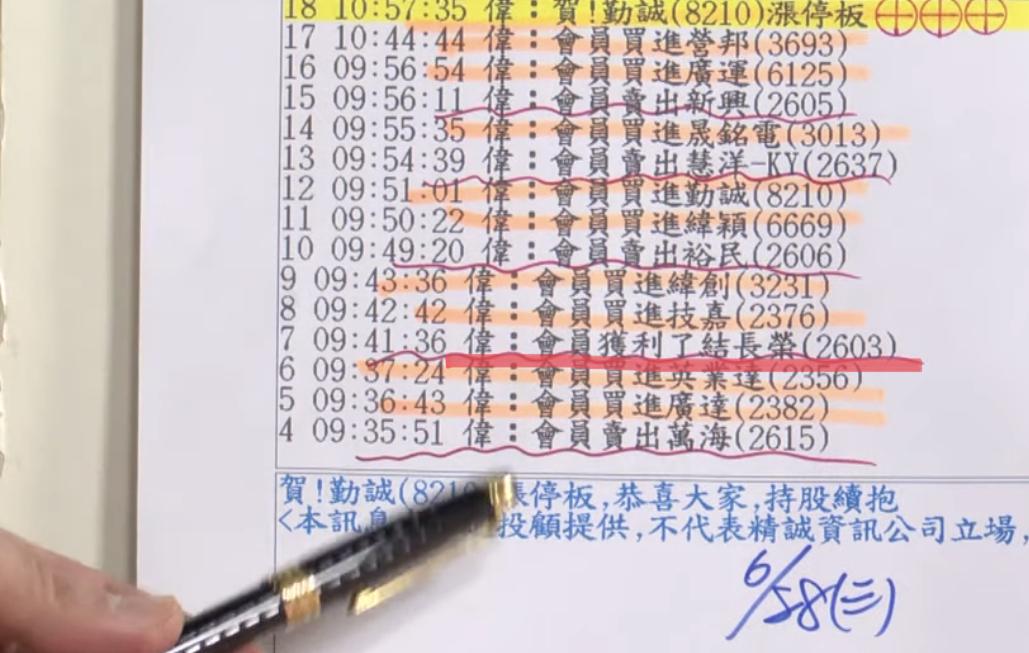 18 10:57:35 偉：賀!勤誠(8210)漲停板
17 10:44:44 偉：會員買進營邦(3693)
16 09:56:54 偉：會員買進廣運(6125)
15 09:56:11 偉：會員賣出新興(2605)
14 09:55:35 偉：會員買進晟銘電(3013)
13 09:54:39 偉：會員賣出慧洋-KY(2637)
12 09:51:01 偉：會員買進勤誠(8210)
11 09:50:22 偉：會員買進緯穎(6669)
10 09:49:20 偉：會員賣出裕民(2606)
9 09:43:36 偉：會員買進緯創(3231)
8 09:42:42 偉：會員買進技嘉(2376)
7 09:41:36 偉：會員獲利了結長榮(2603)
6 09:37:24 偉：會員買進英業達(2356)
5 09:36:43 偉：會員買進廣達(2382)
4 09:35:51 偉：會員賣出萬海(2615)
賀!勤誠(8210 漲停板,恭喜大家,持股續抱
<本訊息 投顧提供,不代表精誠資訊公司立場,
6/28(三)